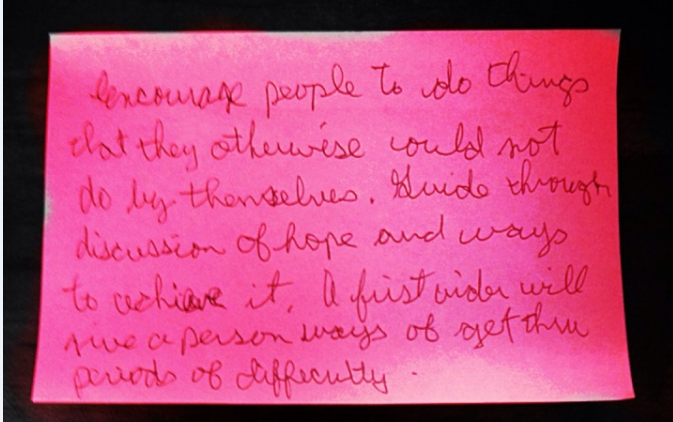 encourage people to do things
that they otherwise would not
do by themselves. Guide through
discussion of hope and ways
to achieve it. A first aider will
give a person ways of get thru
periods of difficulty.